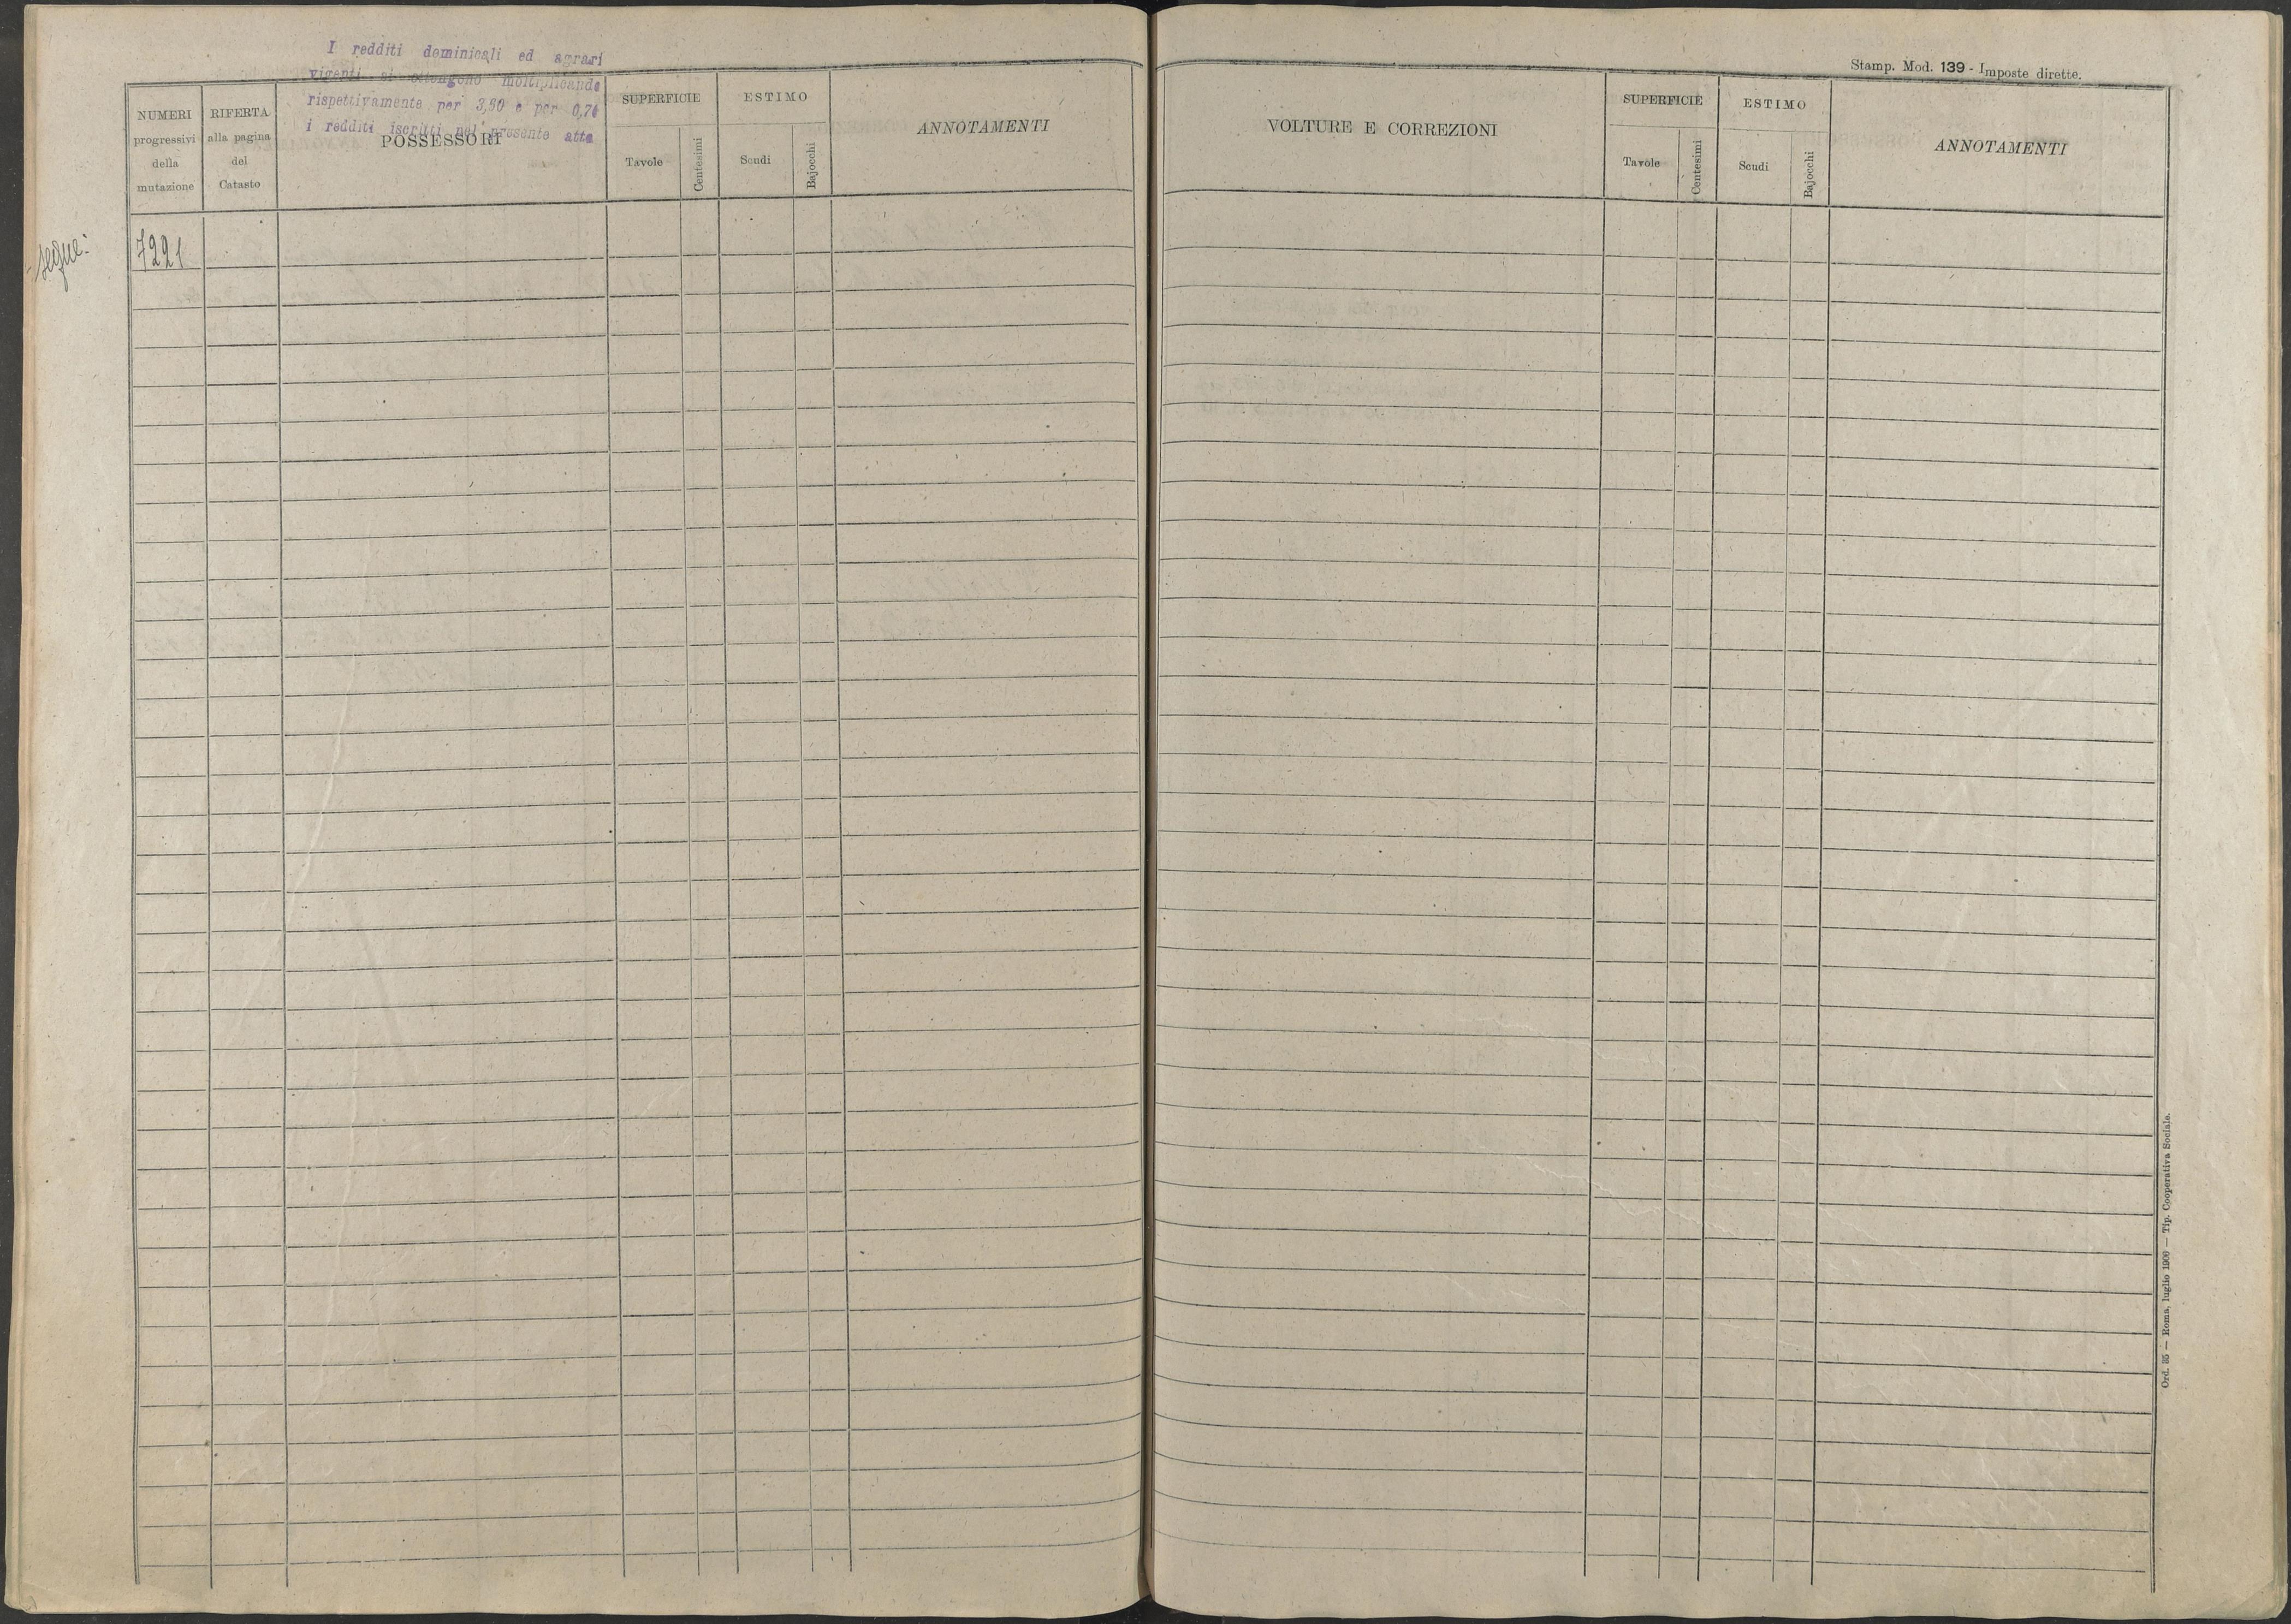 I redditi dominicali ed agrari
vigenti si ottengono moltiplicando
rispettivamente per 3,60 e per 0,74
i redditi iscritti nel presente atto
NUMERI
progressivi
della
mutazione
RIFERTA
alla pagina
del
Catasto
POSSESSORI
SUPERFICIE
Tavole
Centesimi
ESTIMO
Scudi
Bajocchi
ANNOTAMENTI
segue:
7221
Stamp. Mod. 139 - Imposte dirette.
VOLTURE E CORREZIONI
SUPERFICIE
Tavole
Centesimi
ESTIMO
Scudi
Bajocchi
ANNOTAMENTI
Ord. 35 — Roma, luglio 1906 — Tip. Cooperativa Sociale.